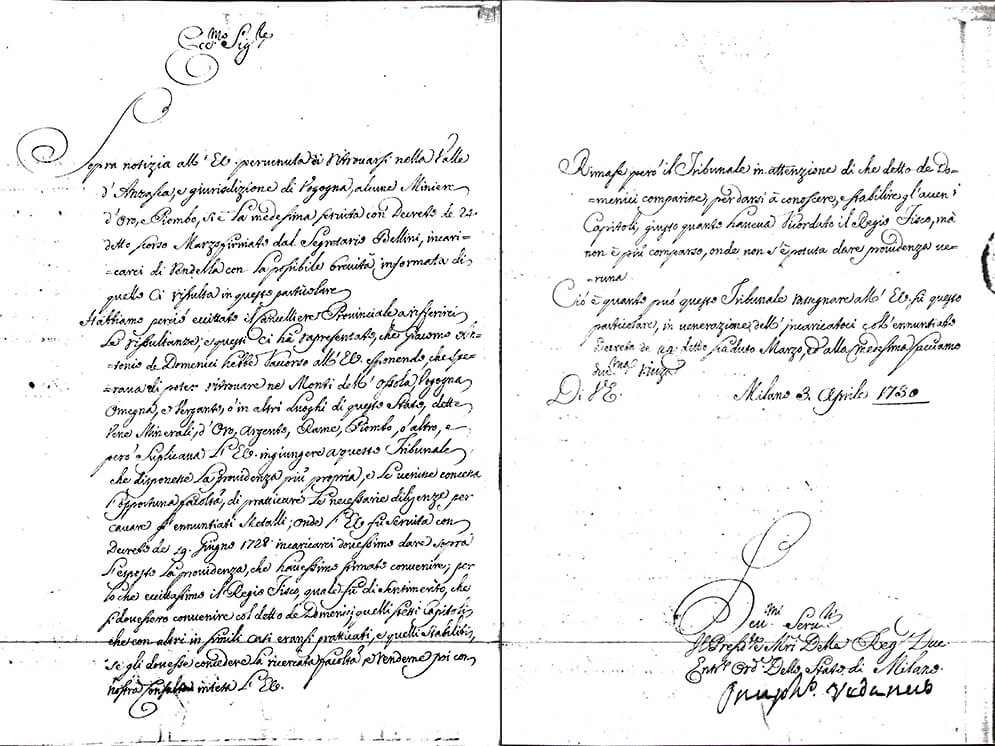 Ecc.mo Sig.re
Sopra notizia all' E.V. pervenuta di ritrovarsi nella Valle
d'Anzasca, e giurisdizione di Vogogna, alcune Miniere
d'Oro, e Piombo, si è la medesima servita con Decreto de 24.
detto scorso Marzo firmato dal Segretario Bellini, incari=
=carci di renderla con la possibile brevità informata di
quello Ci risulta in questo particolare
Habbiamo perciò eccittato il Cancelliere Provinciale a riferirci
le risultanze, e questi Ci ha rapresentato, che Giacomo An=
=tonio de Domenici hebbe raccorso all' E.V. esponendo che spe=
=rava di poter ritrovare ne Monti dell' Ossola, Vogogna
Omegna, e Vergante, ò in altri Luoghi di questo Stato, dette
Vene Minerali, d'Oro, Argento, Rame, Piombo, ò altro, e
però suplicava l' E.V. ingiungere a questo Tribunale,
che disponesse la providenza più propria, e le venisse concessa
l'opportuna facoltà, di pratticare le necessarie diligenze per
cavare gl' ennuntiati Metalli; onde l' E.V. fù servita con
Decreto de 19. Giugno 1728 incaricarci dovessimo dare sopra
l'esposto la providenza, che havessimo stimato convenire; per
lo che eccittassimo il Regio Fisco, quale fù di sentimento, che
si dovessero convenire col detto de Domenici quelli stessi Capitoli,
che con altri in simili casi eransi pratticati, e quelli stabiliti
se gli dovesse concedere la ricercata facoltà, e renderne poi con
nostra Consulta intesa l' E.V.
Rimase però il Tribunale in attenzione di che detto de Do=
=menici comparisse, per darsi à conoscere, e stabilire gl'accen.ti
Capitoli, giusto quanto haveva ricordato il Regio Fisco, mà
non è più comparso, onde non s'è potuta dare providenza ve=
=runa
Ciò è quanto può questo Tribunale rassegnare all' E.V. sù questo
particolare, in venerazione dell' incaricatoci coll' ennuntiato
Decreto de 24. detto scaduto Marzo, ed alla medesima facciamo
Di V.E. Milano 3. Aprile 1730
Dev.mi Serv.ri
Il Presid.te e M.ri Delle Reg.e Duc.e
Entr.e Ord.e Dello Stato di Milano.